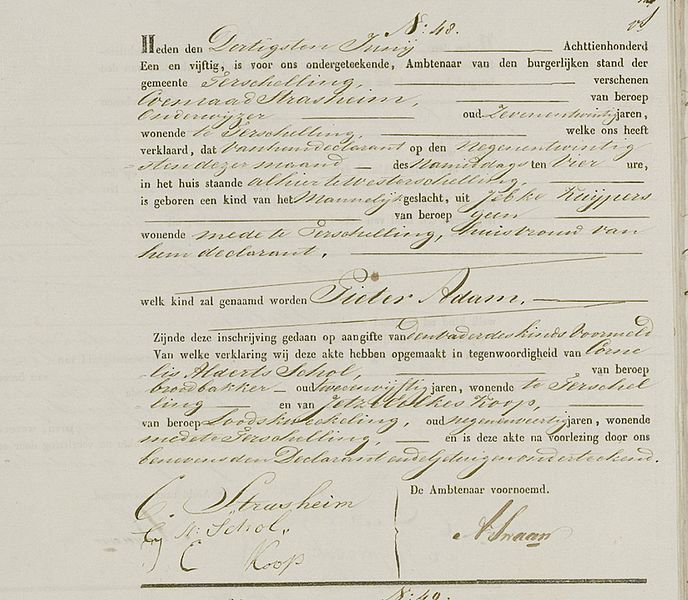 N: 48.
Heden den Dertigsten Junij Achttienhonderd
Een en vijftig, is voor ons ondergeteekende, Ambtenaar van den burgerlijken stand der
gemeente Terschelling, verschenen
Coenraad Strasheim, van beroep
Onderwijzer oud Zevenentwintig jaren,
wonende te Terschelling, welke ons heeft
verklaard, dat van hem declarant op den Negenentwintig
sten dezer maand des Namiddags ten Vier ure,
in het huis staande alhier te Westerschelling,
is geboren een kind van het Mannelijk geslacht, uit Jebke Kuijpers
van beroep geen
wonende mede te Terschelling, huisvrouw van
hem declarant.
welk kind zal genaamd worden Pieter Adam.
Zijnde deze inschrijving gedaan op aangifte van den vader des kinds voormeld
Van welke verklaring wij deze akte hebben opgemaakt in tegenwoordigheid van Corne
lis Alderts Schol, van beroep
broodbakker oud tweeenvijftig jaren, wonende te Terschel
ling en van Jelze Folkes Koop,
van beroep Loodskweekeling, oud negenenveertig jaren, wonende
mede te Terschelling, en is deze akte na voorlezing door ons
benevens den Declarant en de getuigen onderteekend.
C. Strasheim
De Ambtenaar voornoemd.
Schol
Koop
N: 49.